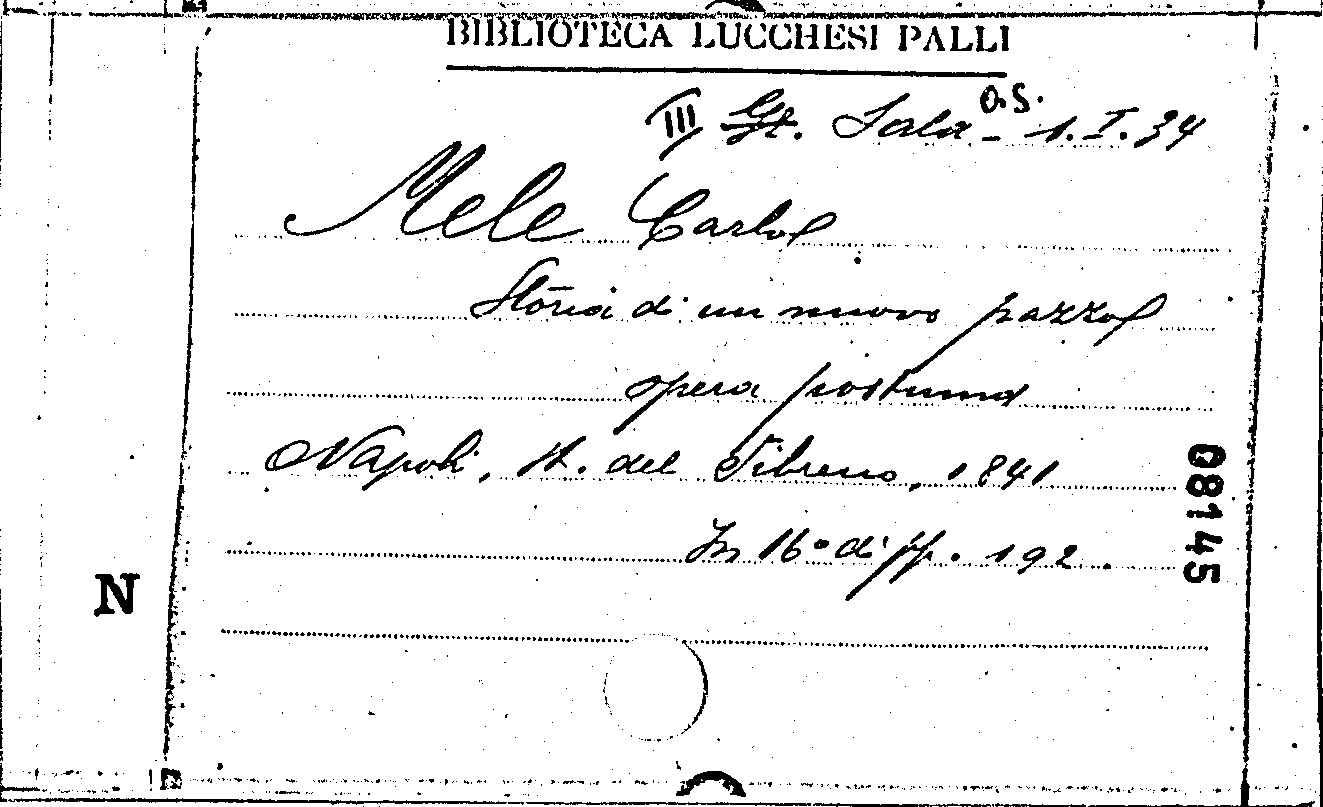 BIBLIOTECA LUCCHESI PALLI
O.S.
III Gt. Sala - 1.I.34
Mele Carlo
Storia di un nuovo pazzo
opera postuma
Napoli, st. del Tibreno, 1841
In 16° di pp. 192.
08145
N